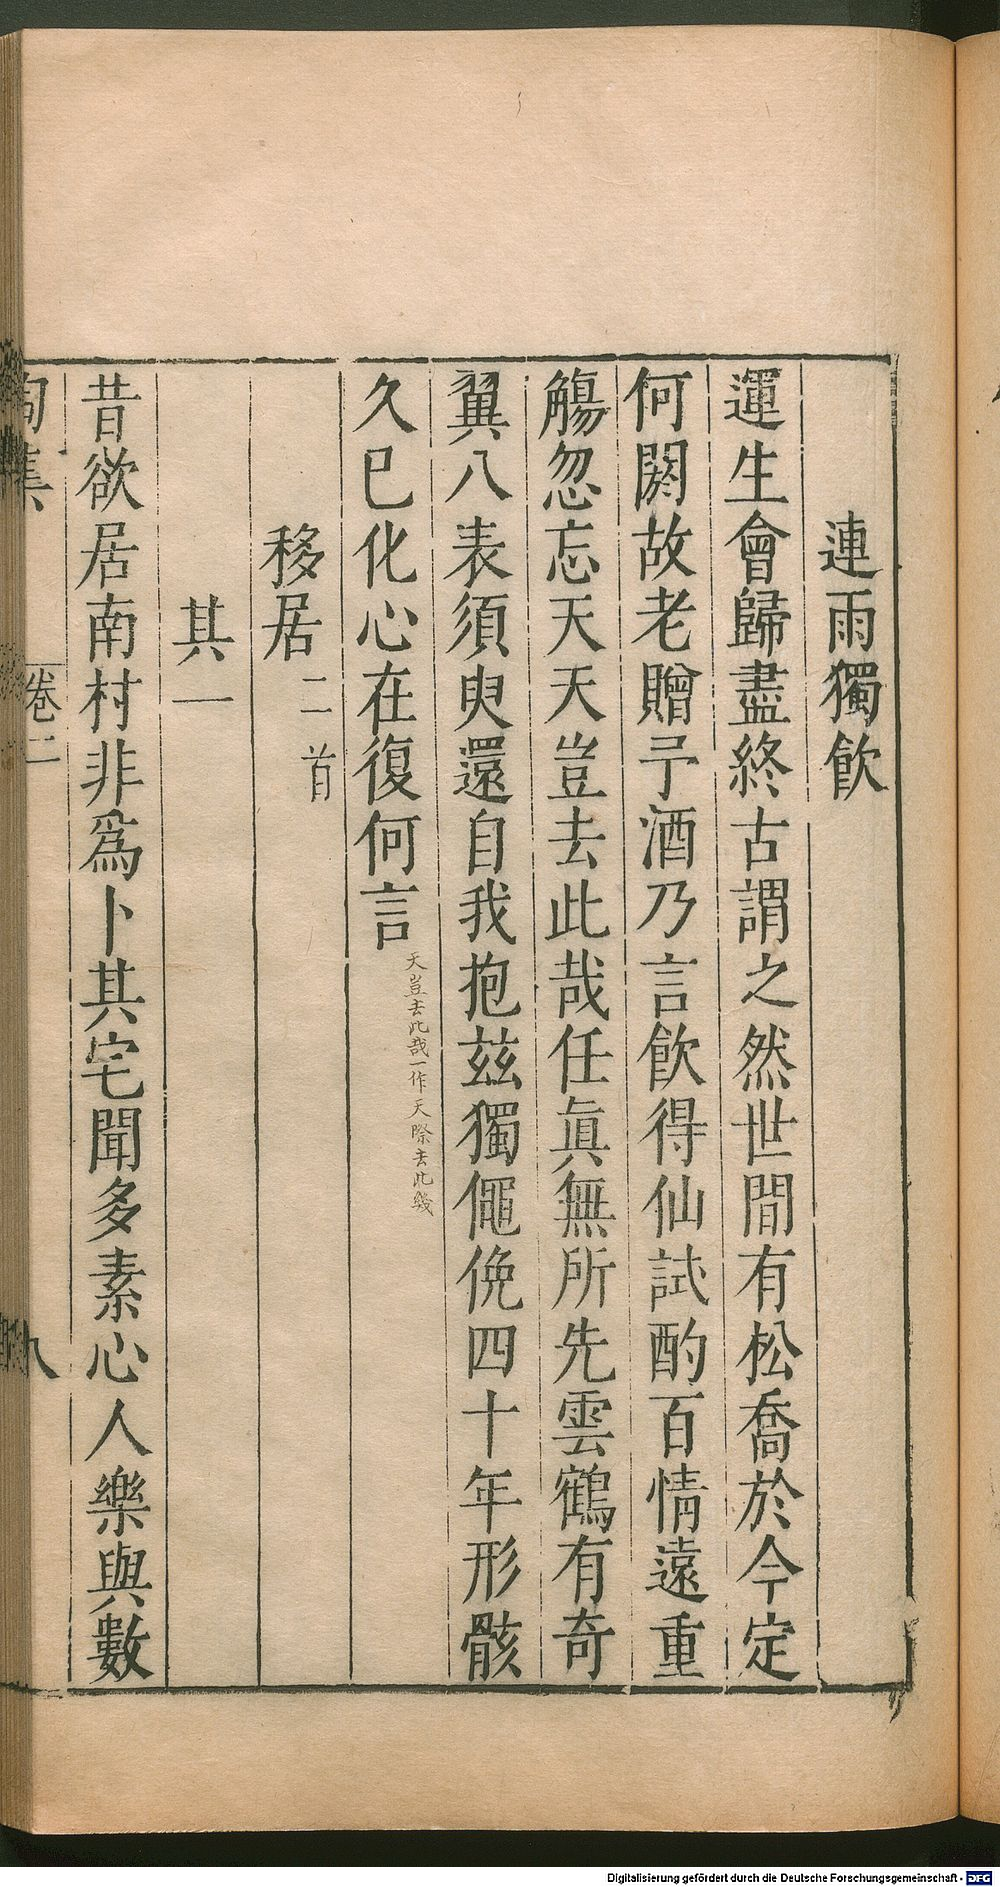 連雨獨飲
運生會歸盡終古謂之然世間有松喬於今定
何閎故老贈予酒乃言飲得仙試酌百情遠重
觴忽忘天天豈去此哉任眞無所先雲鶴有奇
翼八表須臾還自我抱茲獨僶俛四十年形骸
久已化心在復何言天豈去此哉一作天際去此幾
移居二首
其一
昔欲居南村非爲卜其宅聞多素心人樂與數
陶集 卷二 八
Digitalisierung gefördert durch die Deutsche Forschungsgemeinschaft - DFG